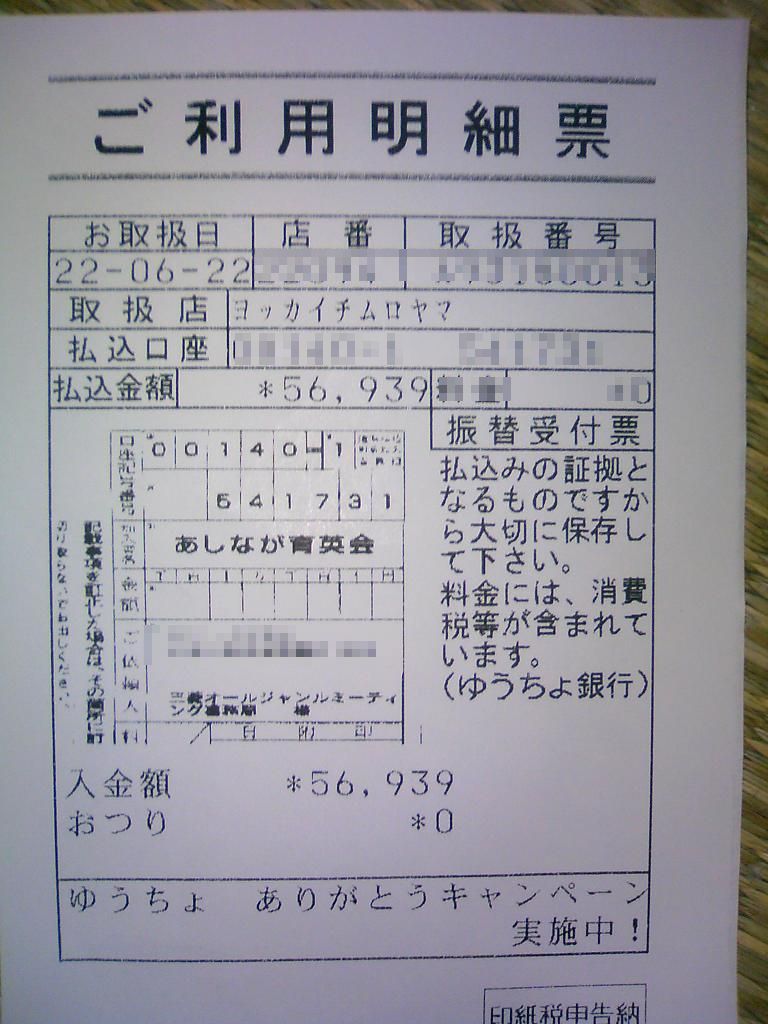 ご利用明細票
お取扱日 店番 取扱番号
22-06-22
取扱店 ヨッカイチムロヤマ
払込口座
払込金額 *56,939 *0
振替受付票
払込みの証拠と
なるものですか
ら大切に保存し
て下さい。
料金には、消費
税等が含まれて
います。
(ゆうちょ銀行)
口座記号番号 00140-1
541731
加入者名 あしなが育英会
金額
ご依頼人
三菱オールジャンルミーティ
ング事務局 様
料 日附印
記載事項を訂正した場合は、その箇所に訂
切り取らないでお出しください。
入金額 *56,939
おつり *0
ゆうちょ ありがとうキャンペーン
実施中!
印紙税申告納